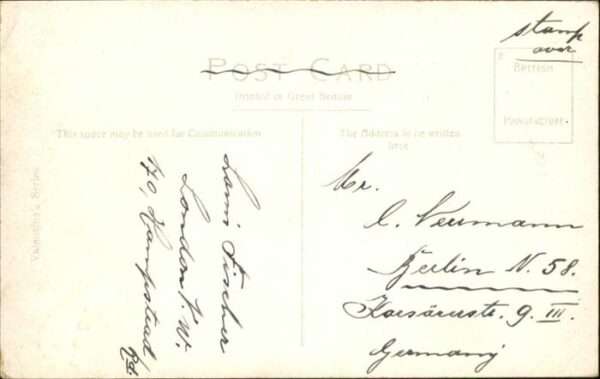 stamp
over
POST CARD
Printed in Great Britain
British
Manufacture.
This space may be used for Communication
The Address to be written
here
Valentine's Series
Fischer
London N.W.
170, Hampstead
Rd.
Mr.
C. Neumann
Berlin N. 58.
9. III.
Germany